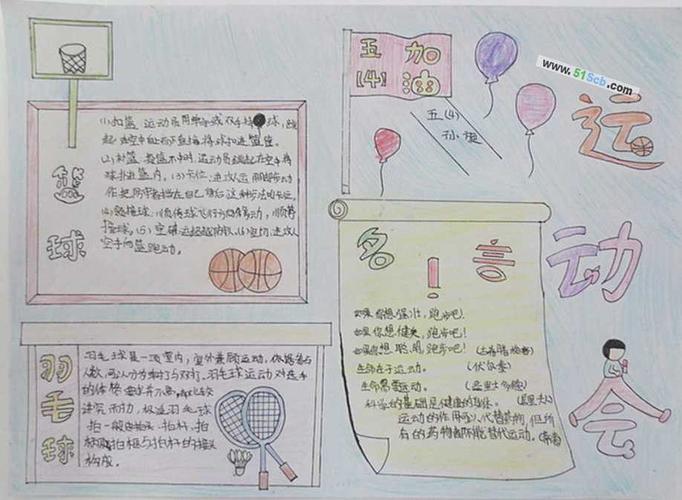 www.51Scb.com
运动会
五(4)
加油
五(4)
孙
篮球
(1)扣篮 运动员用单手或双手持球,跳
起在空中自上而下直接将球扣进篮筐。
(2)补篮 投篮不中时,运动员跳起在空中将
球补进篮内。(3)卡位 进攻人运用脚步动
作把防守者挡在自己身后这种步法叫卡位。
接球
空手向篮跑动。
名言!
如果你想强壮,跑步吧!
如果你想健美,跑步吧!
如果你想聪明,跑步吧!
生命在于运动。
生命需要运动。
科学的基础是健康的身体。
运动的作用可以代替药物,但所
有的药物都不能替代运动。
羽毛球
羽毛球是一项室内,室外兼顾运动。依据参与
人数,可以分为单打与双打。羽毛球运动对选手
的体格要求并不高,
讲究耐力,极适
羽毛球
拍一般由拍头、拍杆、拍
柄及拍框与拍杆的接头
构成。